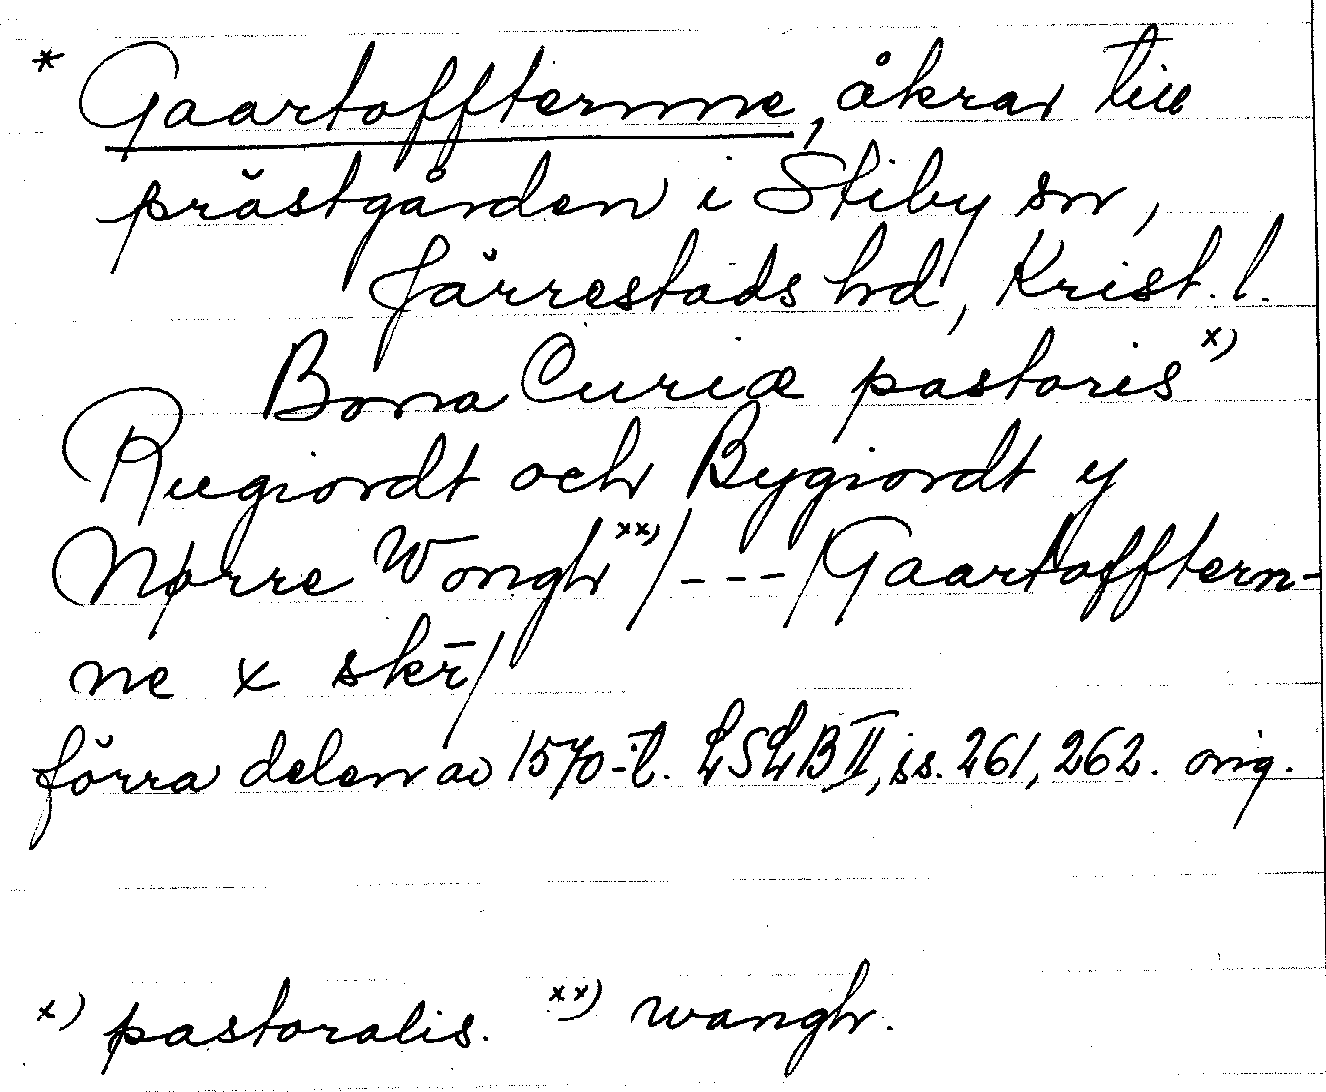 * Gaartoffternne, åkrar till
prästgården i Stiby sn,
Järrestads hd, Krist. l.
Bona Curiæ pastoris x)
Rugiordt och Bygiordt y
Nørre Wongh xx) / --- / Gaartofftern-
ne x skr̄ /
förra delen av 1570-t. LSLB II, ss. 261, 262. orig.
x) pastoralis. xx) wangh.